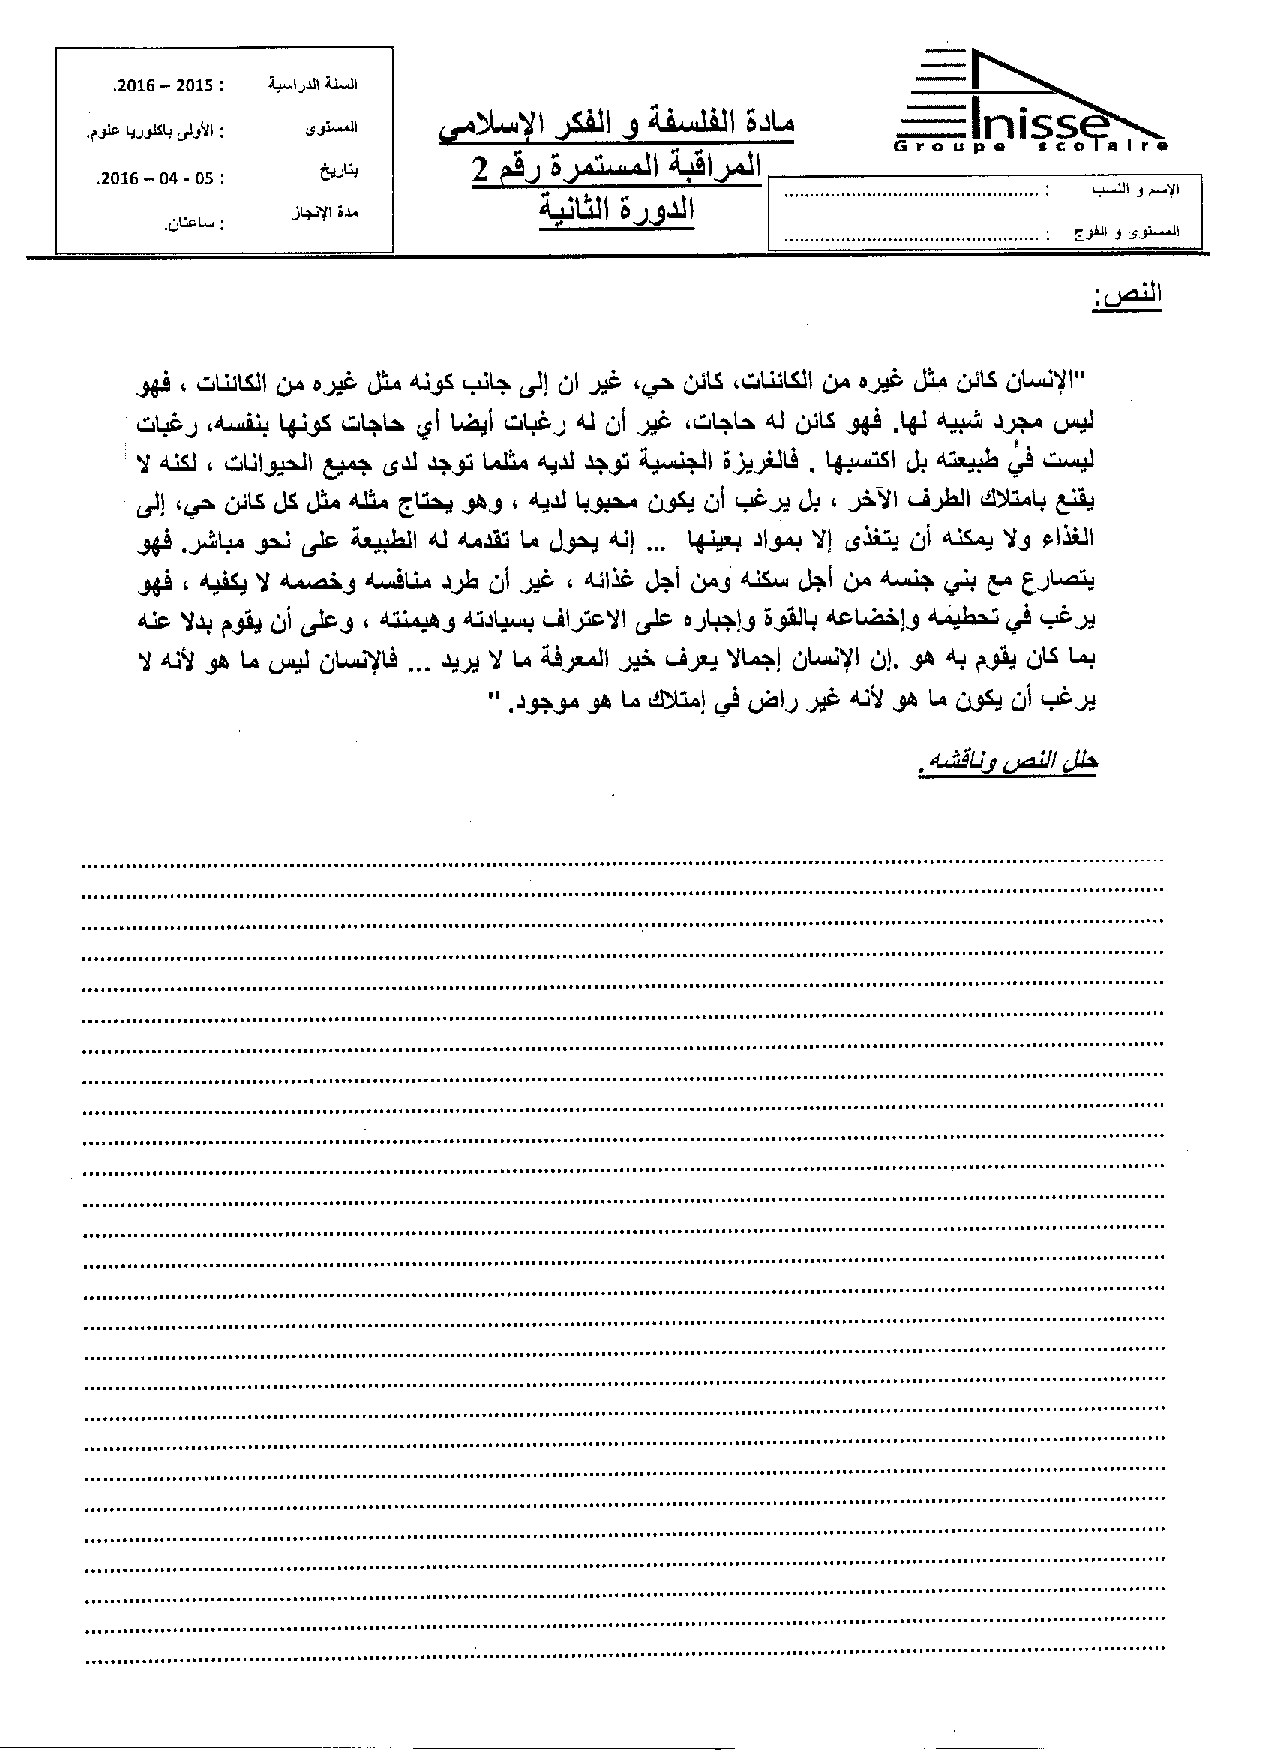 Inisse
Groupe scolaire
الإسم و النسب : ..........................................
المستوى و الفوج : ..........................................
مادة الفلسفة و الفكر الإسلامي
المراقبة المستمرة رقم 2
الدورة الثانية
السنة الدراسية : 2015 – 2016.
المستوى : الأولى باكلوريا علوم.
بتاريخ : 05 - 04 – 2016.
مدة الإنجاز : ساعتان.
النص:
"الإنسان كائن مثل غيره من الكائنات، كائن حي، غير ان إلى جانب كونه مثل غيره من الكائنات ، فهو
ليس مجرد شبيه لها. فهو كائن له حاجات، غير أن له رغبات أيضا أي حاجات كونها بنفسه، رغبات
ليست في طبيعته بل اكتسبها . فالغريزة الجنسية توجد لديه مثلما توجد لدى جميع الحيوانات ، لكنه لا
يقنع بامتلاك الطرف الآخر ، بل يرغب أن يكون محبوبا لديه ، وهو يحتاج مثله مثل كل كائن حي، إلى
الغذاء ولا يمكنه أن يتغذى إلا بمواد بعينها ... إنه يحول ما تقدمه له الطبيعة على نحو مباشر. فهو
يتصارع مع بني جنسه من أجل سكنه ومن أجل غذائه ، غير أن طرد منافسه وخصمه لا يكفيه ، فهو
يرغب في تحطيمه وإخضاعه بالقوة وإجباره على الاعتراف بسيادته وهيمنته ، وعلى أن يقوم بدلا عنه
بما كان يقوم به هو .إن الإنسان إجمالا يعرف خير المعرفة ما لا يريد ... فالإنسان ليس ما هو لأنه لا
يرغب أن يكون ما هو لأنه غير راض في إمتلاك ما هو موجود. "
حلل النص وناقشه .